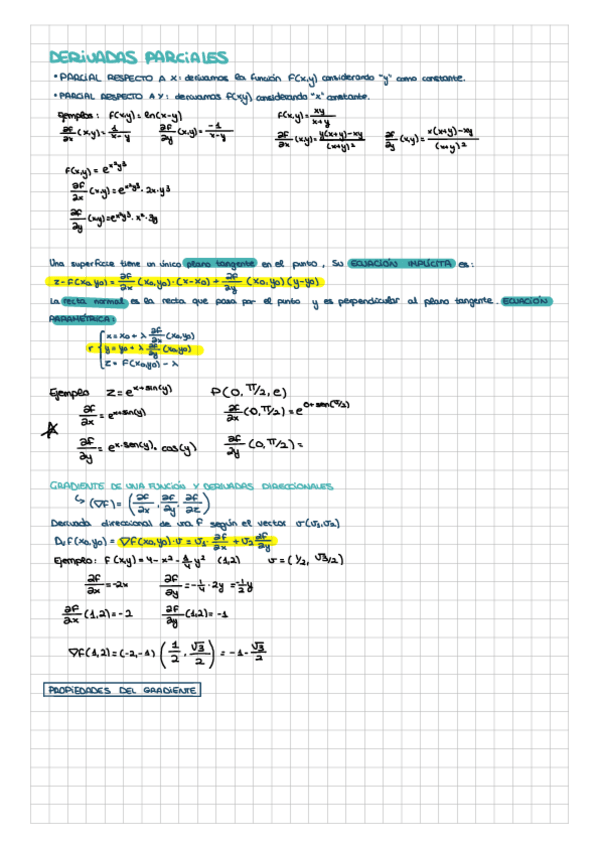 DERIVADAS PARCIALES
• PARCIAL RESPECTO A X: derivamos la función F(x,y) considerando "y" como constante.
• PARCIAL RESPECTO A Y: derivamos F(x,y) considerando "x" constante.
Ejemplos: F(x,y) = ln(x-y)    F(x,y) = xy/(x+y)
∂F/∂x (x,y) = 1/(x-y)    ∂F/∂y (x,y) = -1/(x-y)    ∂F/∂x (x,y) = (y(x+y)-xy)/(x+y)²    ∂F/∂y (x,y) = (x(x+y)-xy)/(x+y)²
F(x,y) = e^(x²y³)
∂F/∂x (x,y) = e^(x²y³) · 2x·y³
∂F/∂y (x,y) = e^(x²y³) · x² · 3y
Una superficie tiene un único plano tangente en el punto, Su ECUACIÓN IMPLÍCITA es:
z - F(x0,y0) = ∂F/∂x (x0,y0) · (x-x0) + ∂F/∂y (x0,y0) (y-y0)
La recta normal es la recta que pasa por el punto y es perpendicular al plano tangente. ECUACIÓN
PARAMÉTRICA:
x = x0 + λ ∂F/∂x (x0,y0)
r { y = y0 + λ · ∂F/∂y (x0,y0)
z = F(x0,y0) - λ
Ejemplo z = e^(x+sin(y))    P(0, π/2, e)
∂F/∂x = e^(x+sin(y))    ∂F/∂x (0, π/2) = e^(0+sen(π/2))
∂F/∂y = e^(x·sen(y)) · cos(y)    ∂F/∂y (0, π/2) =
GRADIENTE DE UNA FUNCIÓN Y DERIVADAS DIRECCIONALES
↳ (∇F) = (∂F/∂x, ∂F/∂y, ∂F/∂z)
Derivada direccional de una F según el vector v(v1,v2)
DvF(x0,y0) = ∇F(x0,y0)·v = v1· ∂F/∂x + v2 ∂F/∂y
Ejemplo: F(x,y) = 4 - x² - 1/4 y²    (1,2)    v = (1/2, √3/2)
∂F/∂x = -2x    ∂F/∂y = -1/4 · 2y = -1/2 y
∂F/∂x (1,2) = -2    ∂F/∂y (1,2) = -1
∇F(1,2) = (-2,-1) (1/2, √3/2) = -1 - √3/2
PROPIEDADES DEL GRADIENTE